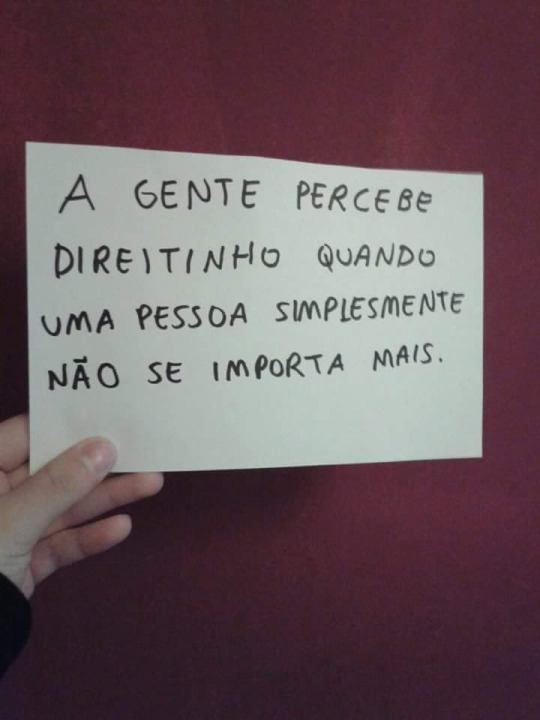 A GENTE PERCEBE
DIREITINHO QUANDO
UMA PESSOA SIMPLESMENTE
NÃO SE IMPORTA MAIS.